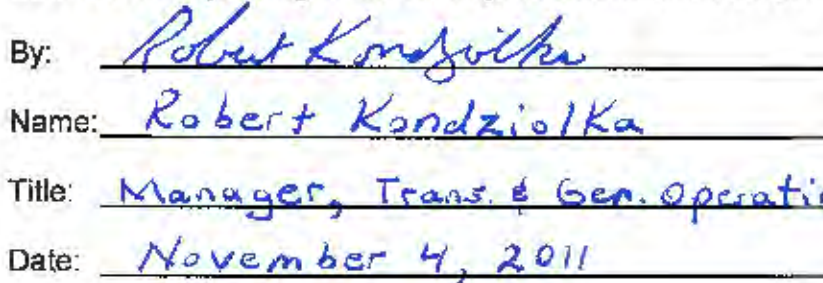 By: Robert Kondziolka
Name: Robert Kondziolka
Title: Manager, Trans. & Gen. Operatio
Date: November 4, 2011